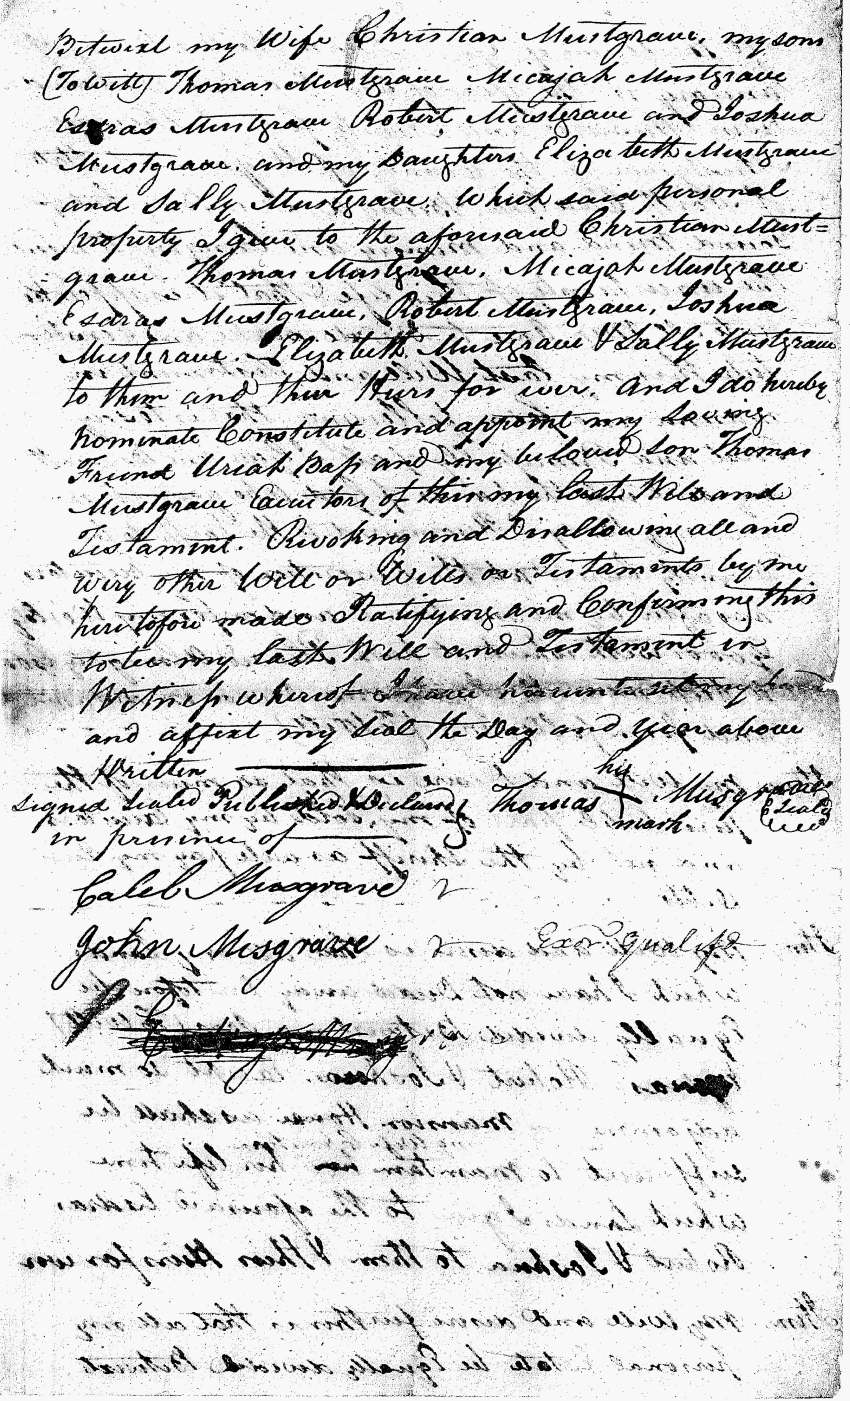 Betwixt my Wife Christian Mustgrave, my sons
(To Witt) Thomas Mustgrave Micajah Mustgrave
Esdras Mustgrave Robert Mustgrave and Joshua
Mustgrave. and my Daughters Elizabeth Mustgrave
and Sally Mustgrave. Which said personal
property I give to the aforesaid Christian Must=
grave. Thomas Mustgrave, Micajah Mustgrave
Esdras Mustgrave, Robert Mustgrave, Joshua
Mustgrave. Elizabeth Mustgrave & Sally Mustgrave
to them and their Heirs for ever. And I do hereby
nominate Constitute and appoint my Loving
Friend Uriah Bass and my beloved Son Thomas
Mustgrave Executors of this my last Will and
Testament. Revoking and Disallowing all and
every other Will or Wills or Testaments by me
heretofore made Ratifying and Confirming this
to be my last Will and Testament in
Witness whereof I have hereunto set my hand
and affixt my Seal the Day and year above
Written
Signed Sealed Published & Declared } Thomas his X mark Musgrave Seal
in presence of
Caleb Musgrave
John Musgrave Exor. qualifd